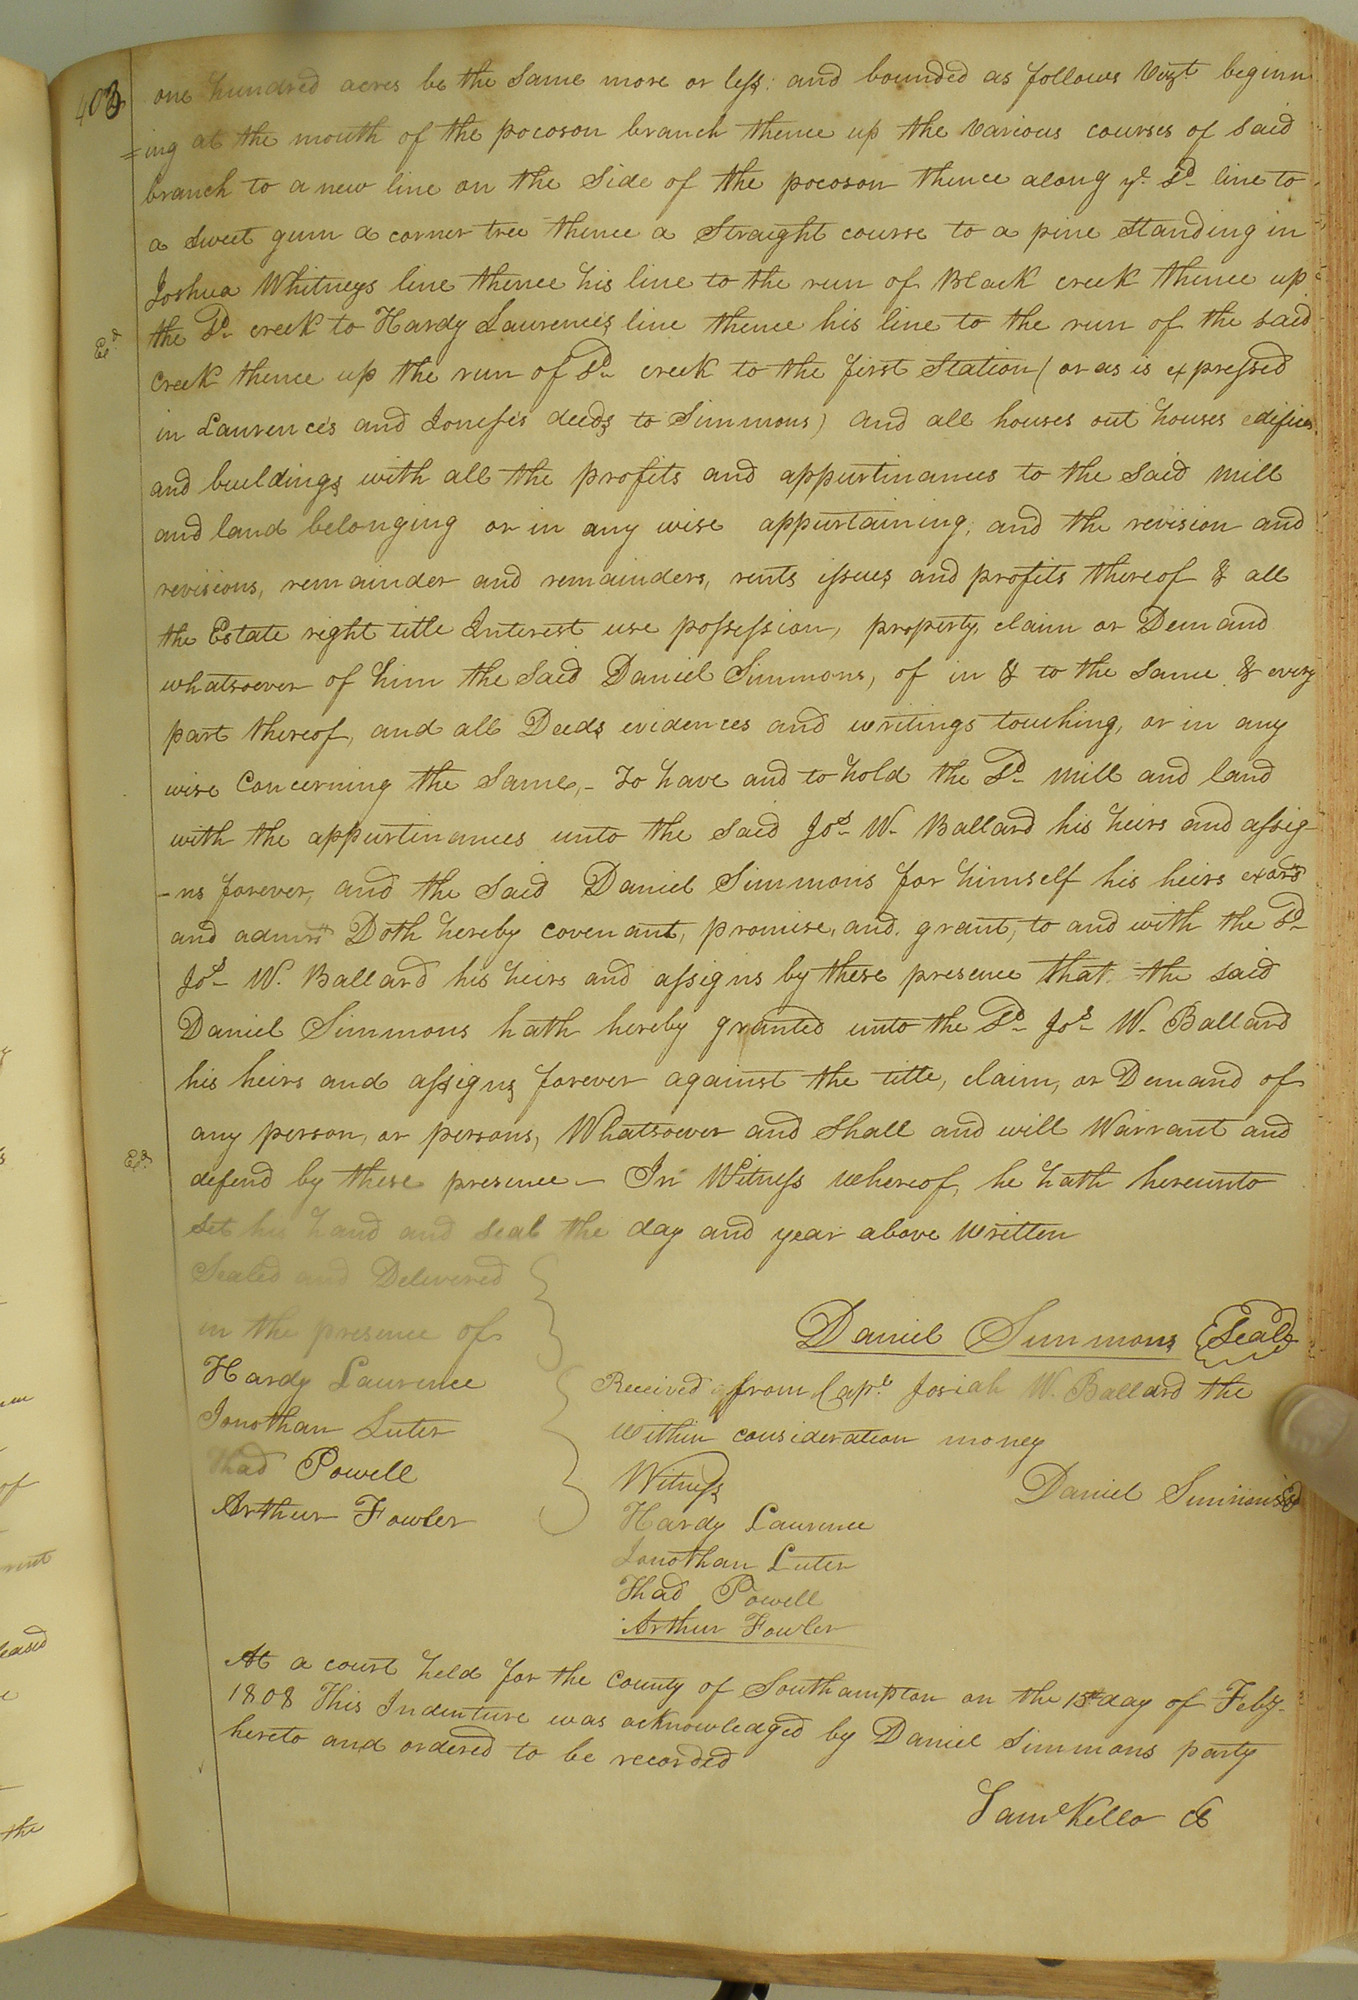 403
one hundred acres be the same more or less; and bounded as follows Vizt beginn
=ing at the mouth of the pocoson branch thence up the various courses of said
branch to a new line on the side of the pocoson thence along ye. Sd. line to
a sweet gum a corner tree thence a straight course to a pine standing in
Joshua Whitneys line thence his line to the run of Black creek thence up
Exd.
the Sd. creek to Hardy Laurence's line thence his line to the run of the said
creek thence up the run of Sd. creek to the first Station (or as is expressed
in Laurence's and Joness's deeds to Simmons) and all houses out houses edifices
and buildings with all the profits and appurtinances to the said mill
and land belonging or in any wise appurtaining, and the revision and
revisions, remainder and remainders, rents issues and profits thereof & all
the Estate right title Interest use possession, property, claim or Demand
whatsoever of him the said Daniel Simmons, of in & to the same & every
part thereof, and all Deeds evidences and writings touching, or in any
wise Concerning the same,- To have and to hold the Sd. mill and land
with the appurtinances unto the said Jos. W. Ballard his heirs and assig-
-ns forever, and the said Daniel Simmons for himself his heirs exors
and admrs Doth hereby covenant, promise, and grant, to and with the Sd.
Jos. W. Ballard his heirs and assigns by these presence that the said
Daniel Simmons hath hereby granted unto the Sd. Jos. W. Ballard
his heirs and assigns forever against the title, claim, or Demand of
any person, or persons, Whatsoever and shall and will Warrant and
Exd.
defend by these presence - In Witness whereof, he hath hereunto
set his hand and seal the day and year above written
Sealed and Delivered
in the presence of
Daniel Simmons Seal
Hardy Laurence
Jonothan Luter
Thad Powell
Arthur Fowler
Received from Capt. Josiah W. Ballard the
within consideration money
Daniel Simmons
Witness
Hardy Laurence
Jonothan Luter
Thad Powell
Arthur Fowler
At a court held for the County of Southampton on the 15th day of Feby.
1808 This Indenture was acknowledged by Daniel Simmons party
hereto and ordered to be recorded
Saml Kello Cl